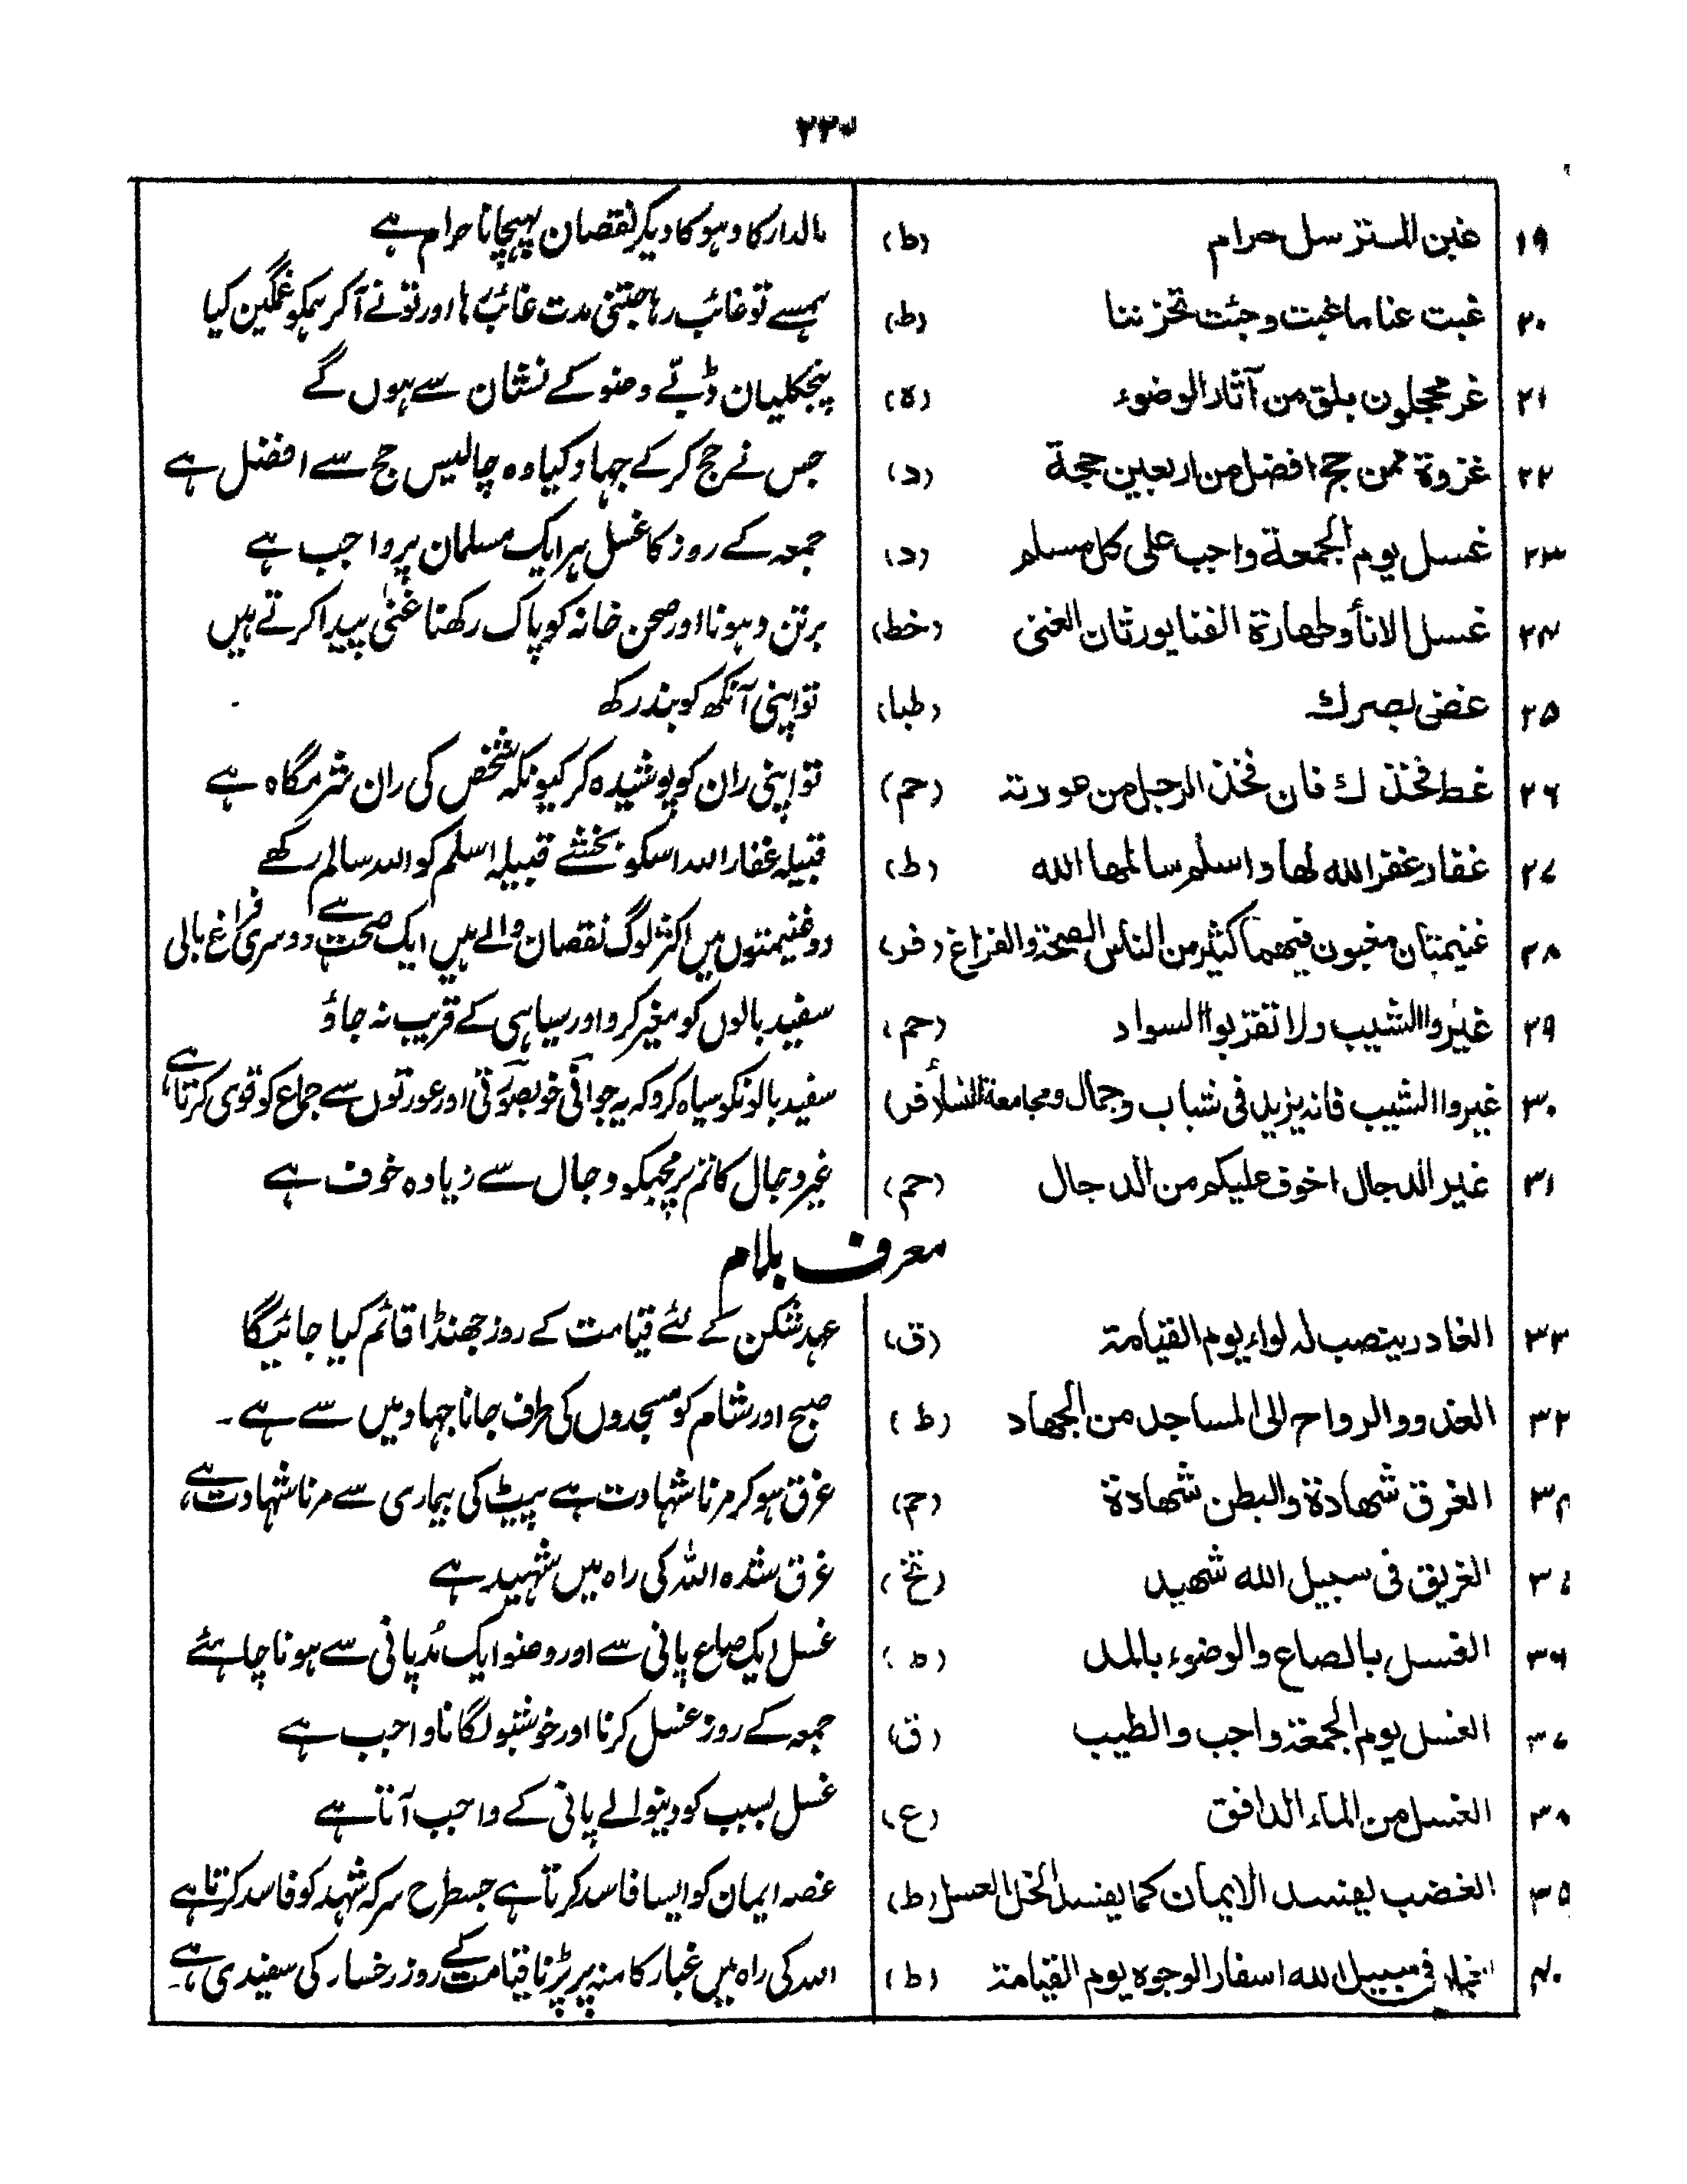 ۲۳۴
۱۹ غبن المسترسل حرام (ط) مالدار کا دہوکا دیکر نقصان پہچانا حرام ہے
۲۰ غبت عنا ما غبت و جئت تحزننا (ط) ہمسے تو غائب رہا جتنی مدت غائب رہا اور تو نے آکر ہمکو غمگین کیا
۲۱ غر محجلون بلق من آثار الوضوء (ہ) پنجکلیان ڈبّے وضو کے نشان سے ہوں گے
۲۲ غزوة ممن حج افضل من اربعین حجة (د) جس نے حج کرکے جہاد کیا وہ چالیس حج سے افضل ہے
۲۳ غسل یوم الجمعة واجب علی کل مسلم (د) جمعہ کے روز کا غسل ہر ایک مسلمان پر واجب ہے
۲۴ غسل الاناء وطهارة الفنا یورثان الغنی (خط) برتن دہونا اور صحن خانہ کو پاک رکھنا غنیٰ پیدا کرتے ہیں
۲۵ غض بصرك (طبا) تو اپنی آنکھ کو بند رکھ
۲۶ غط فخذك فان فخذ الرجل من عورته (حم) تو اپنی ران کو پوشیدہ کر کیونکہ شخص کی ران شرمگاہ ہے
۲۷ غفار غفر الله لها و اسلم سالمها الله (ط) قبیلہ غفار اللہ اسکو بخشے قبیلہ اسلم کو اللہ سالم رکھے
۲۸ غنیمتان مغبون فیهما کثیر من الناس الصحة والفراغ (فر) دو غنیمتوں میں اکثر لوگ نقصان والے ہیں ایک صحت ہے دوسری فراغ بالی
۲۹ غیروا الشیب ولا تقربوا السواد (حم) سفید بالوں کو مغیر کرو اور سیاہی کے قریب نہ جاؤ
۳۰ غیروا الشیب فانه یزید فی شباب وجمال ومجامعة النساء (فر) سفید بالونکو سیاہ کرو کہ یہ جوانی خوبصورتی اور عورتوں سے جماع کو قوی کرتا ہے
۳۱ غیر الدجال اخوف علیکم من الدجال (حم) غیر دجال کا تم پر مجھکو دجال سے زیادہ خوف ہے
معرف بلام
۳۲ الغادر ینصب له لواء یوم القیامة (ق) عہد شکن کے لئے قیامت کے روز جھنڈا قائم کیا جائیگا
۳۳ الغدو والرواح الی المساجد من الجهاد (ط) صبح اور شام کو مسجدوں کی طرف جانا جہاد میں سے ہے۔
۳۴ الغرق شهادة والبطن شهادة (حم) غرق ہو کر مرنا شہادت ہے پیٹ کی بیماری سے مرنا شہادت ہے
۳۵ الغریق فی سبیل الله شهید (تخ) غرق شدہ اللہ کی راہ میں شہید ہے
۳۶ الغسل بالصاع والوضوء بالمد (ط) غسل ایک صاع پانی سے اور وضو ایک مُد پانی سے ہونا چاہئے
۳۷ الغسل یوم الجمعة واجب والطیب (ق) جمعہ کے روز غسل کرنا اور خوشبو لگانا واجب ہے
۳۸ الغسل من الماء الدافق (ع) غسل بسبب کودنیوالے پانی کے واجب آتا ہے
۳۹ الغضب یفسد الایمان کما یفسد الخل العسل (ط) غصہ ایمان کو ایسا فاسد کرتا ہے جسطرح سرکہ شہد کو فاسد کرتا ہے
۴۰ فی سبیل الله اسفار الوجوه یوم القیامة (ط) اللہ کی راہ میں غبار کا منہ پر پڑنا قیامت کے روز رخسار کی سفیدی ہے۔